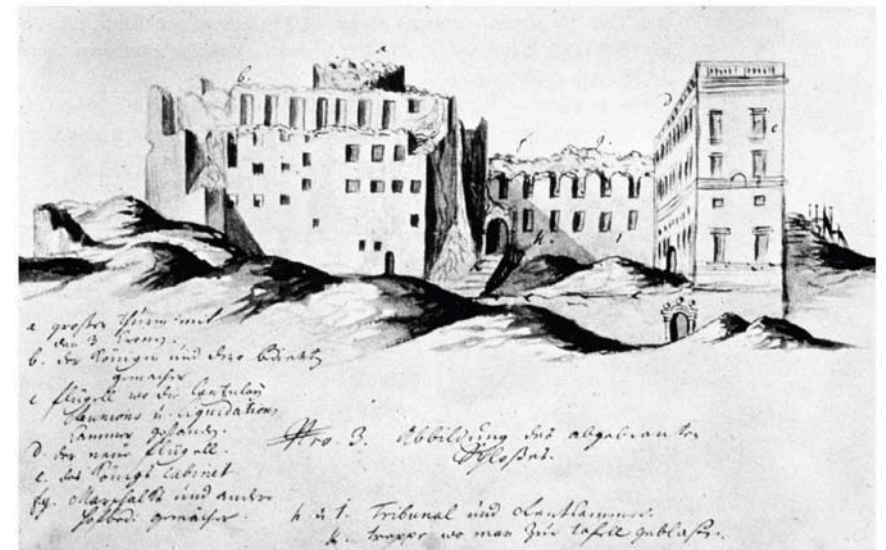 a
b.
f
g.
d
e
h.
i
a großer Thurm mit
den 3 Cronen.
b. der Königin und dero
gemächer
c flügell wo die Cantzley
u. Liquidations
Cammer gestanden.
d. der neue flügell.
e. des Königs Cabinet
fg. Marschalls und andere
gemächer.
Nro. 3. Abbildung des abgebranten
Schloßes.
h. & i. Tribunal und
k. trappe wo man zur tafell geblasen.